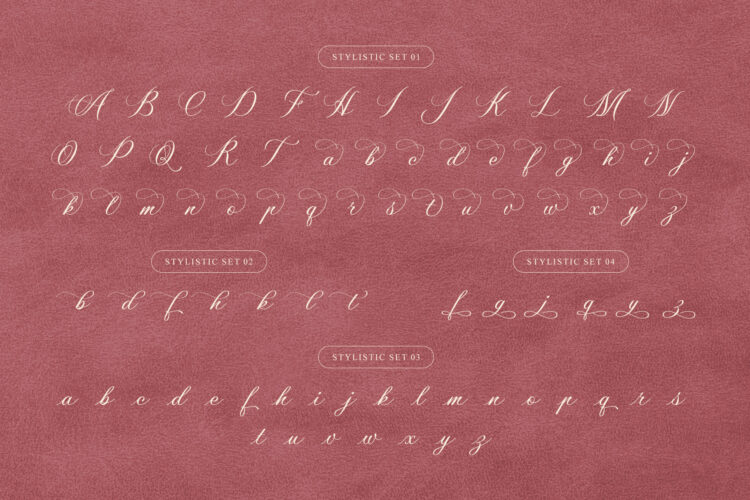 STYLISTIC SET 01
A B C D F H I J K L M N
O P Q R T a b c d e f g h i j
k l m n o p q r s t u v w x y z
STYLISTIC SET 02
b d f h k l t
STYLISTIC SET 04
f g j q y z
STYLISTIC SET 03
a b c d e f h i j k l m n o p q r s
t u v w x y z